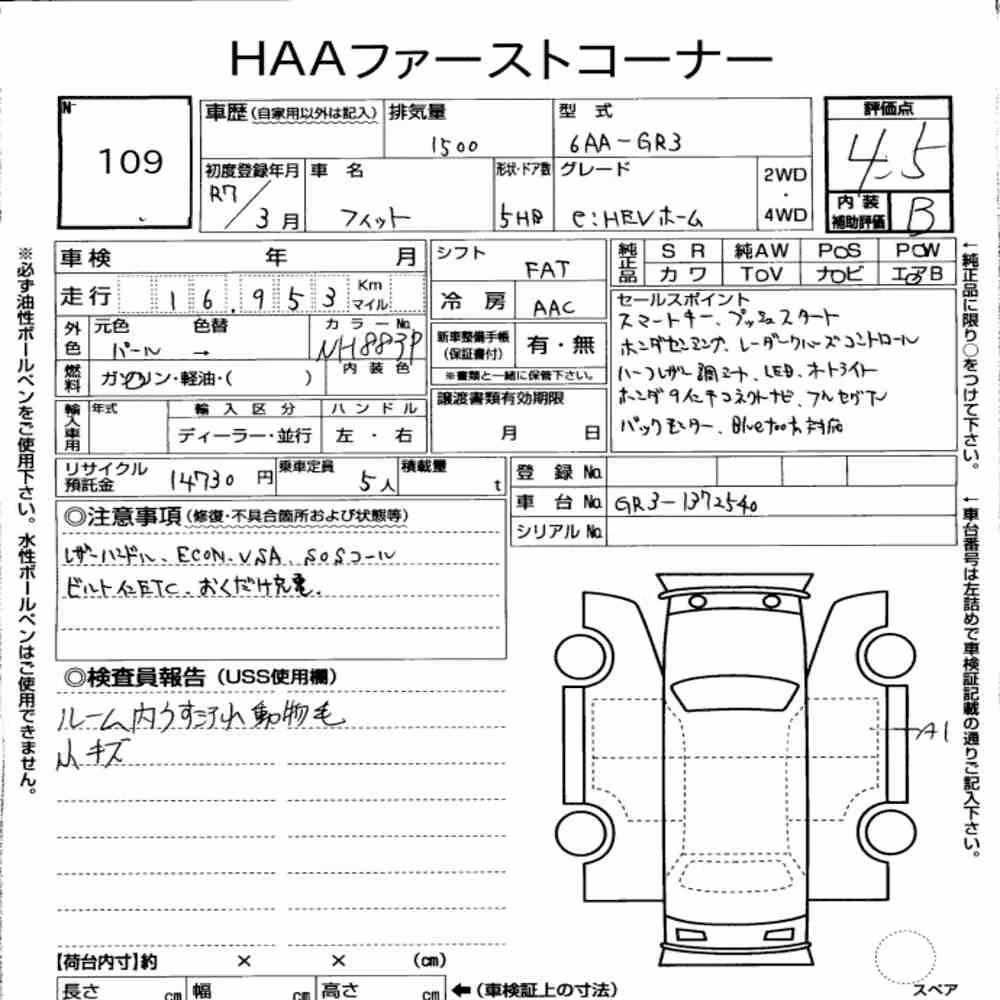 HAAファーストコーナー
N-
109
車歴(自家用以外は記入) 排気量 1500 型式 6AA-GR3
初度登録年月 R7/3月 車名 フィット 形状・ドア数 5HB グレード e:HEVホーム 2WD・4WD
評価点 4.5
内装補助評価 B
車検 年 月
走行 16,953 Km マイル
外色 元色 パール → 色替 カラーNo. NH883P
内装色
燃料 ガソリン・軽油・( )
輸入車用 年式 輸入区分 ディーラー・並行 ハンドル 左・右
シフト FAT
冷房 AAC
新車整備手帳(保証書付) 有・無
※書類と一緒に保管下さい。
譲渡書類有効期限 月 日
純正品 SR 純AW PoS PoW
カワ ToV ナビ エアB
セールスポイント
スマートキー、プッシュスタート
ホンダセンシング、レーダークルーズコントロール
ハーフレザー調シート、LED、オートライト
ホンダ9インチコネクトナビ、フルセグTV
バックモニター、Bluetooth対応
リサイクル預託金 14730円 乗車定員 5人 積載量 t
登録No.
車台No. GR3-1372540
シリアルNo.
◎注意事項(修復・不具合箇所および状態等)
レザーハンドル、ECON、VSA、SOSコール
ビルトインETC、おくだけ充電、
◎検査員報告(USS使用欄)
ルーム内うす汚れ 動物毛
小キズ
A1
【荷台内寸】約 × × (cm)
長さ cm 幅 cm 高さ cm ←(車検証上の寸法)
スペア
※必ず油性ボールペンをご使用下さい。水性ボールペンはご使用できません。
←純正品に限り○をつけて下さい。
←車台番号は左詰めで車検証記載の通りご記入下さい。